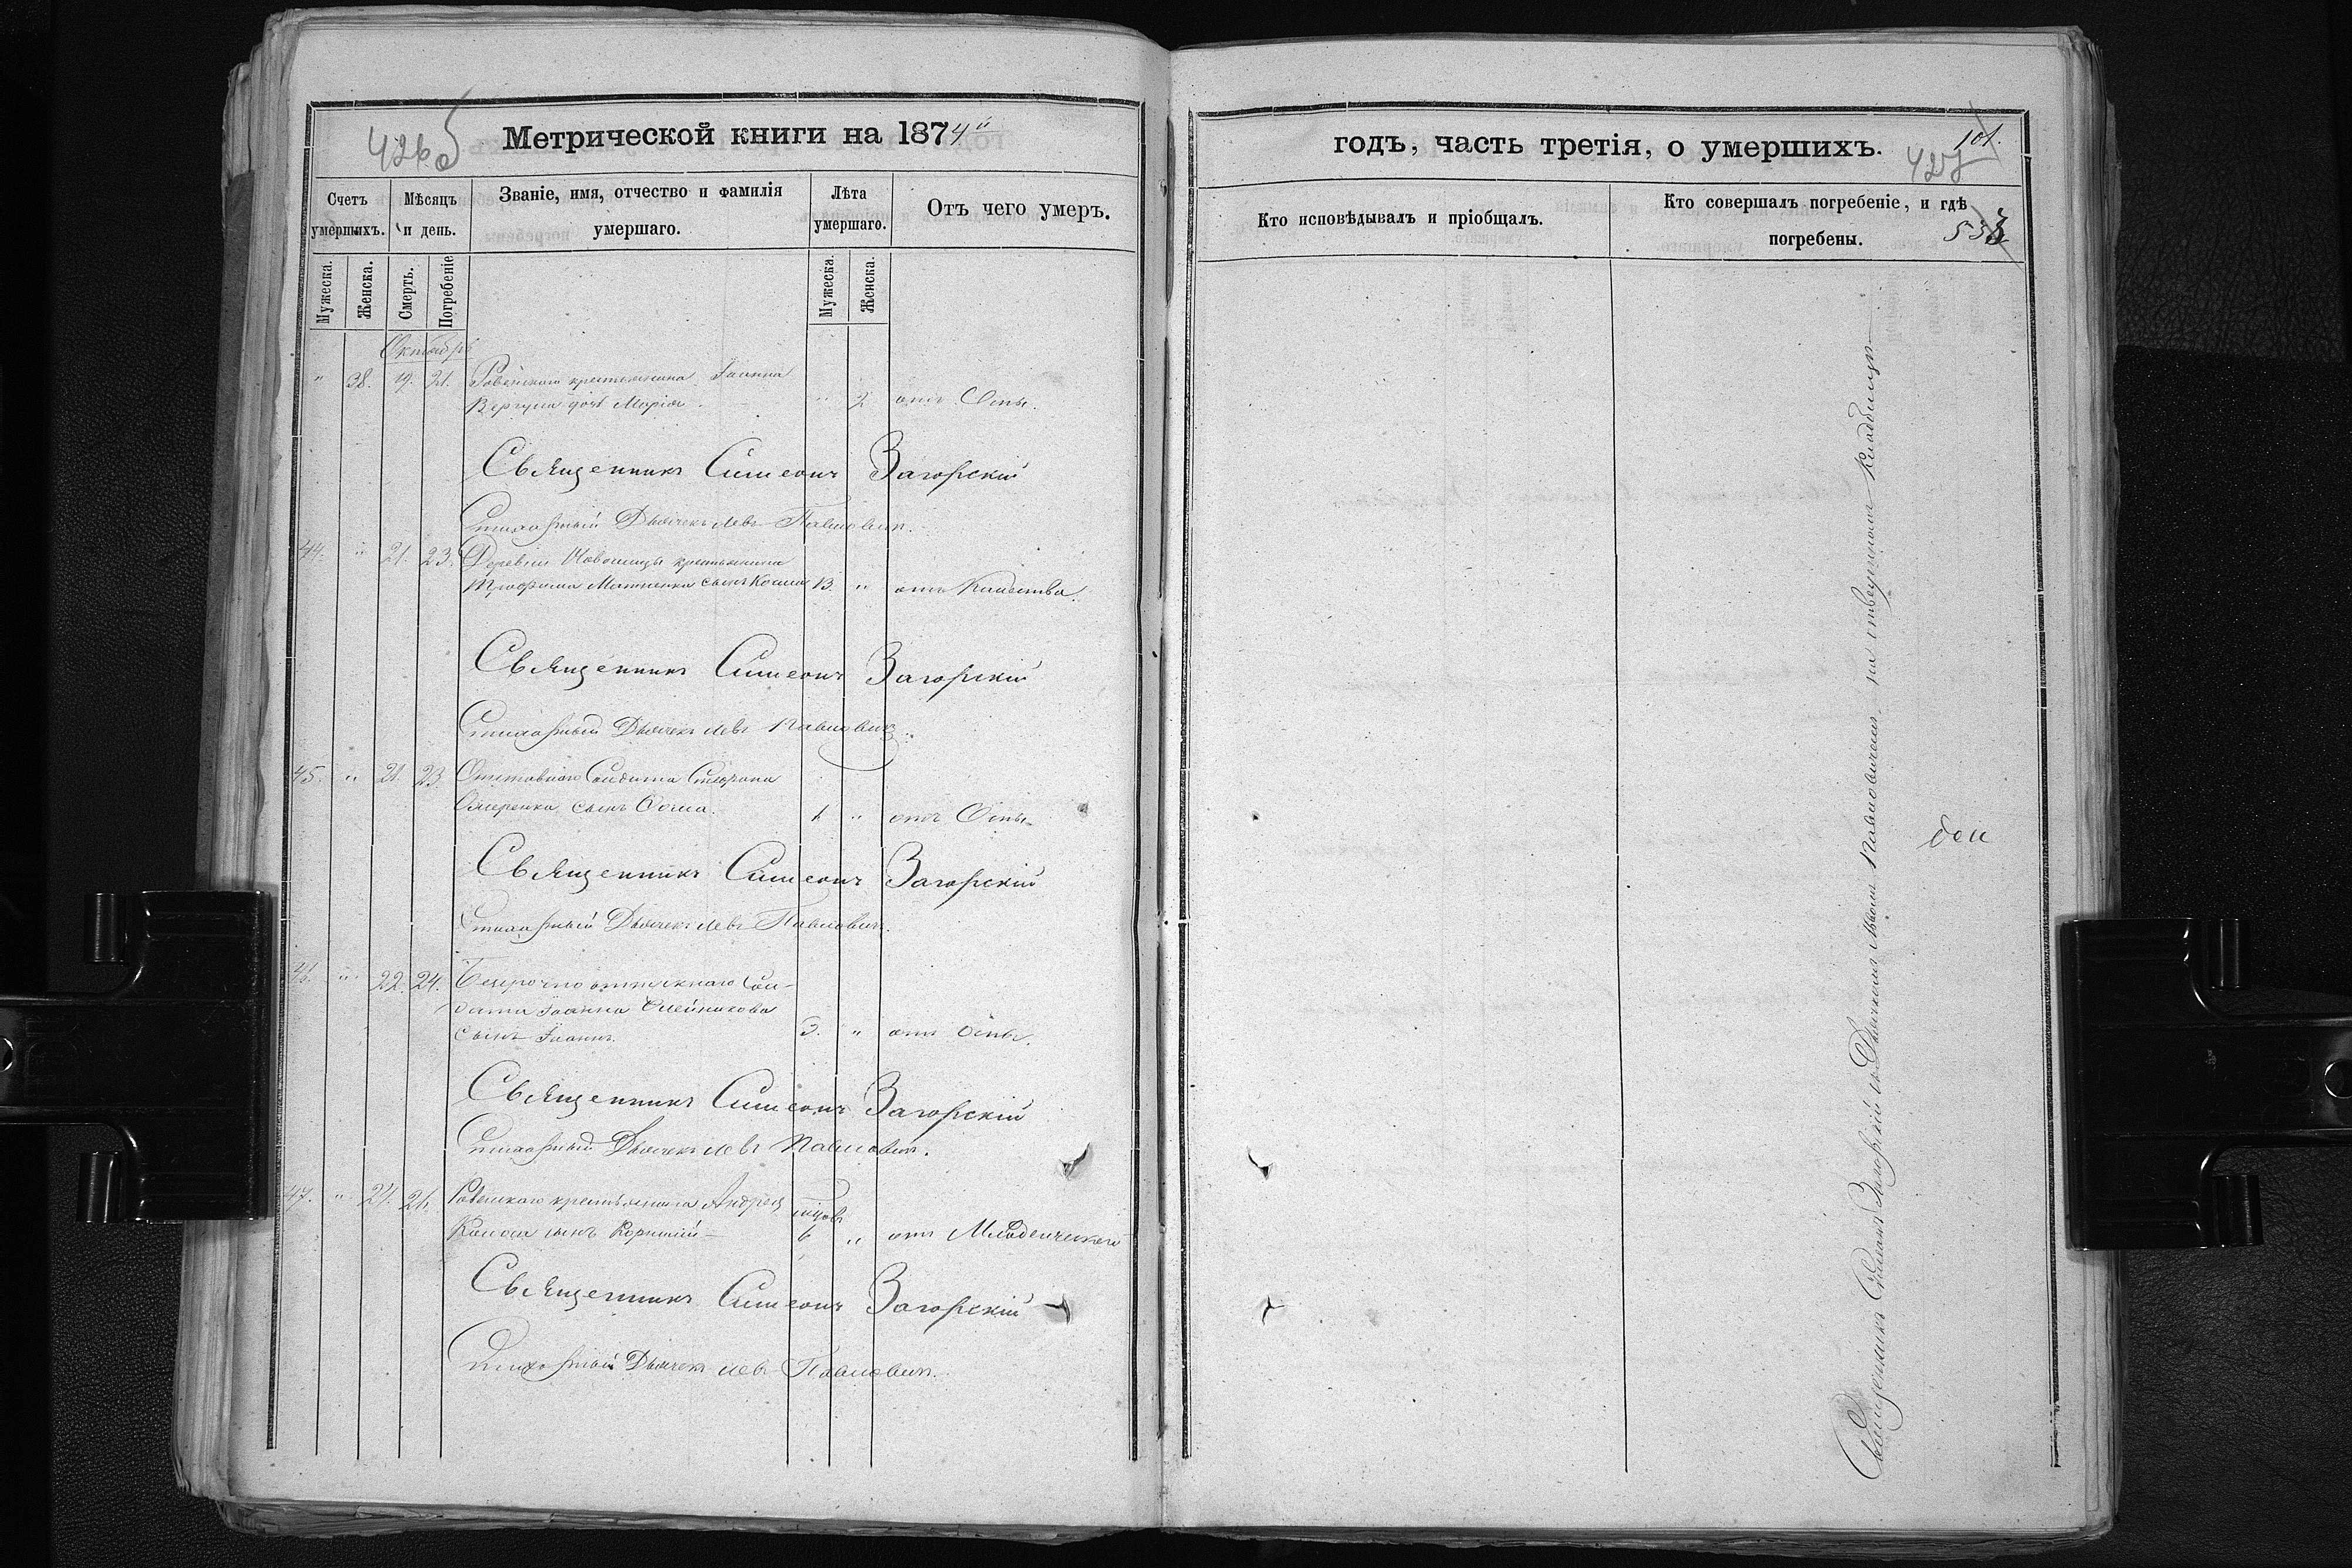 426об
Метрической книги на 1874й
Счетъ умершихъ.
Мѣсяцъ и день.
Званіе, имя, отчество и фамилія умершаго.
Лѣта умершаго.
Отъ чего умеръ.
Мужеска. Женска. Смерть. Погребеніе Мужеска. Женска.
Октябрь
" 38. 19. 21. крестьянина Іоанна
дочь Марія. " 2 отъ Оспы.
Священникъ Симеонъ Загорскій
Стихарный Дьячекъ Левъ Павловичъ.
44. " 21. 23. Деревни крестьянина
Трофима сынъ Косма 13. " отъ
Священникъ Симеонъ Загорскій
Стихарный Дьячекъ Левъ Павловичъ.
45. " 21. 23. Отставнаго Солдата Стефана
сынъ Ѳома. 1 " отъ Оспы
Священникъ Симеонъ Загорскій
Стихарный Дьячекъ Левъ Павловичъ.
46. " 22. 24. Безсрочно отпускнаго Сол-
дата Іоанна Олейникова
сынъ Іоаннъ. 3. " отъ Оспы.
Священникъ Симеонъ Загорскій
Стихарный Дьячекъ Левъ Павловичъ.
47. " 24. 26. крестьянина Андрея
сынъ Корнилій 6 " отъ Младенческаго
Священникъ Симеонъ Загорскій
Стихарный Дьячекъ Левъ Павловичъ.
годъ, часть третія, о умершихъ.
101.
427
533
Кто исповѣдывалъ и пріобщалъ.
Кто совершалъ погребеніе, и гдѣ погребены.
Священникъ Симеонъ Загорскій съ Дьячкомъ Львомъ Павловичемъ на кладбищѣ